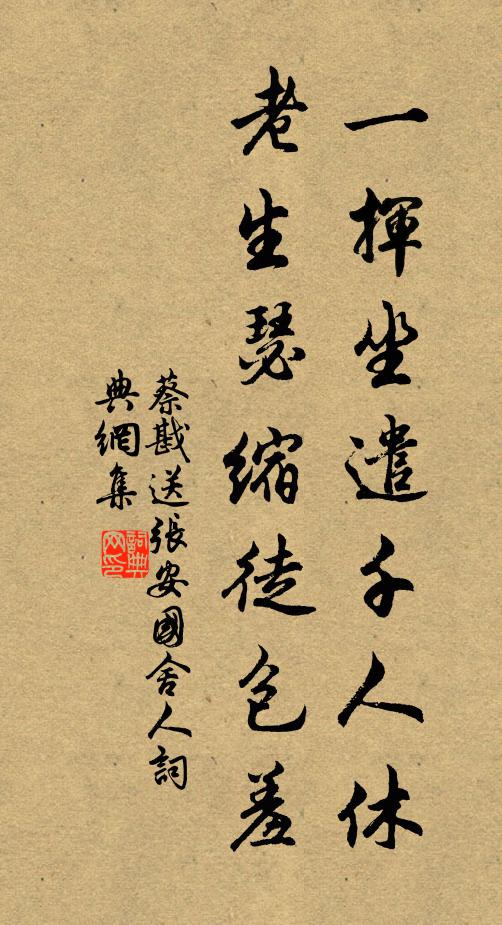 一揮坐遣千人休
老生瑟縮徒包羞
蔡戡送張安國舍人詞
典網集
詞典網印